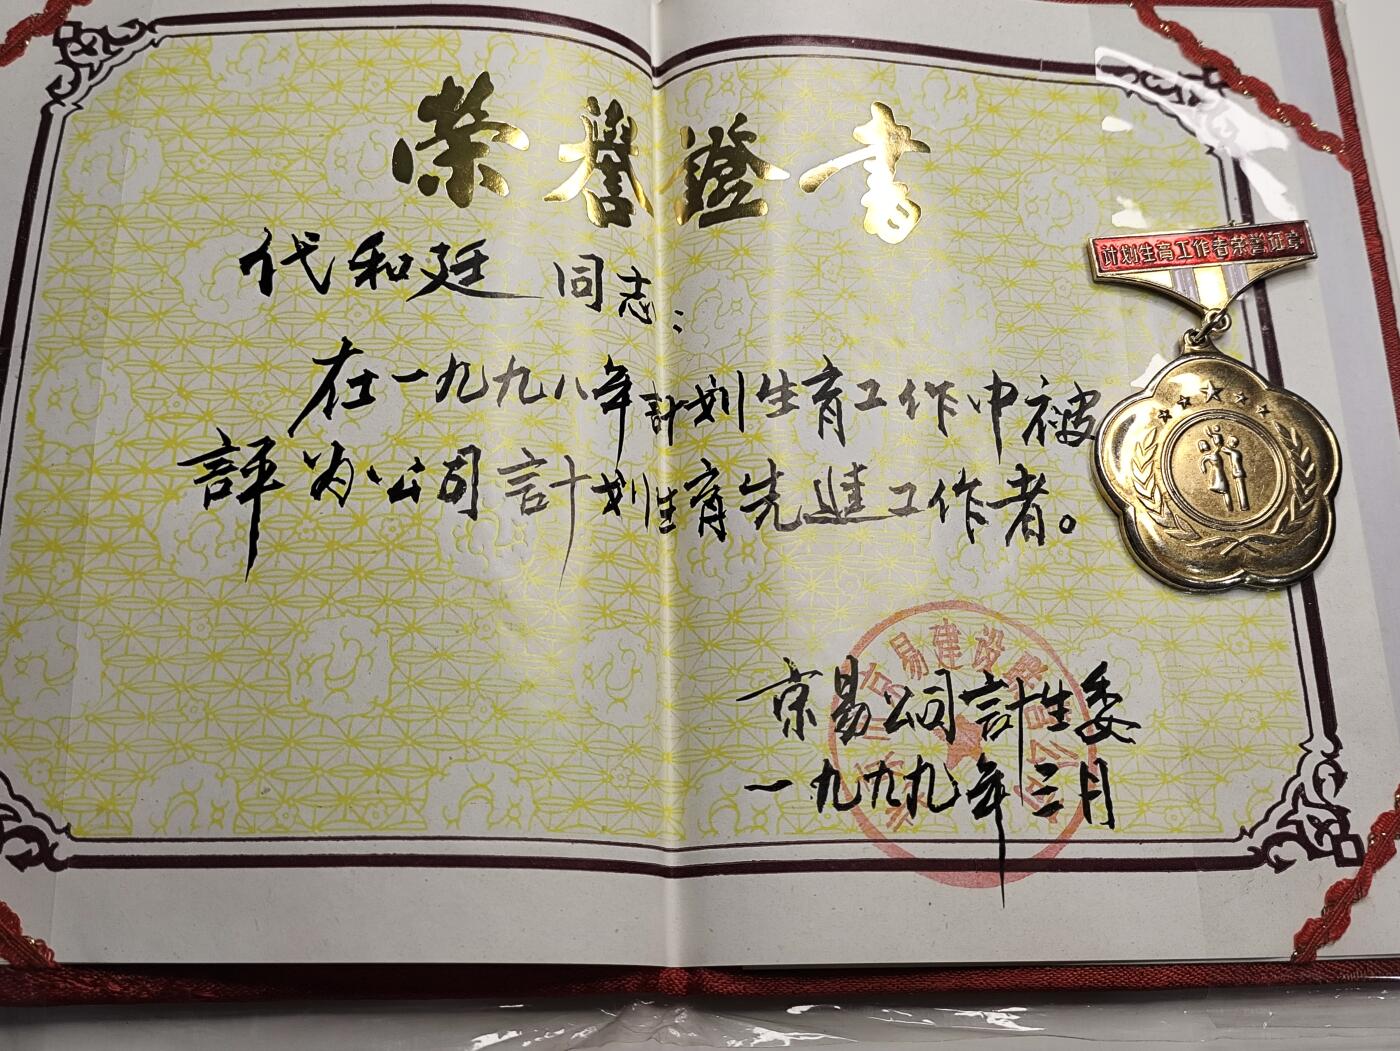 榮譽證書
代和廷 同志:
在一九九八年計划生育工作中被
評为公司計划生育先進工作者。
京易公司計生委
一九九九年三月
京易建设
公司
计划生育工作者荣誉证章